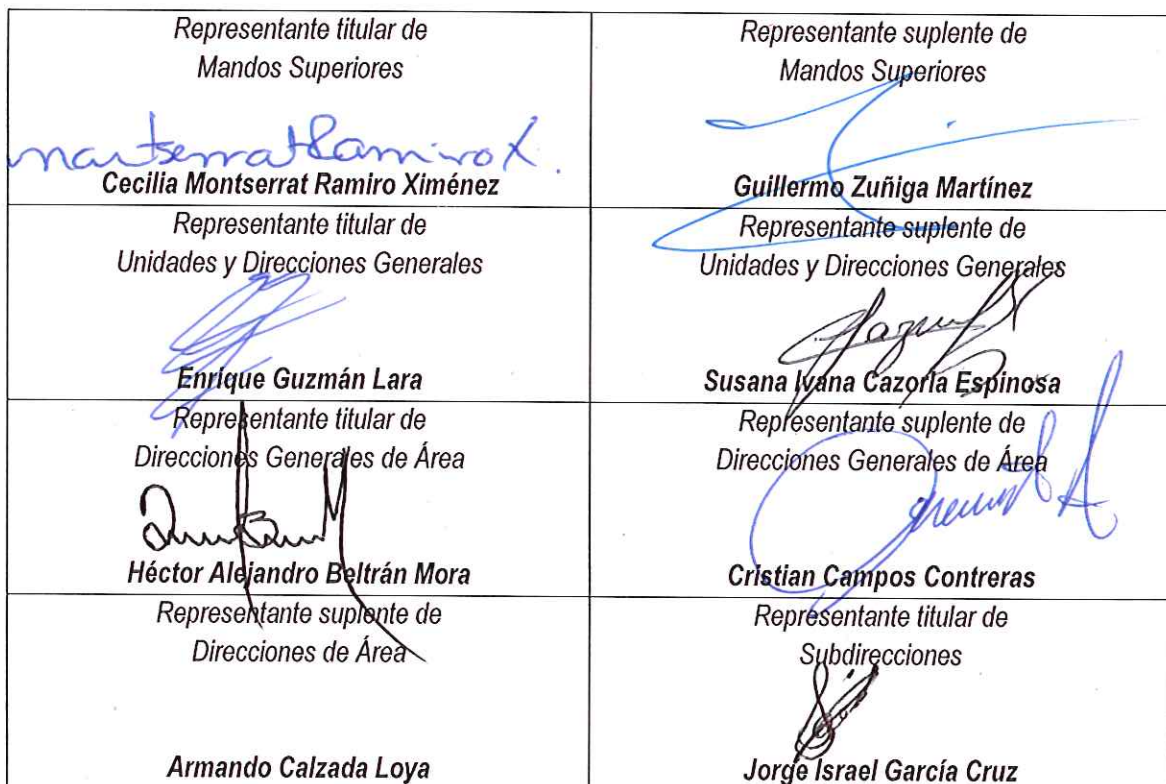 Representante titular de
Mandos Superiores
Montserrat Ramiro X.
Cecilia Montserrat Ramiro Ximénez
Representante suplente de
Mandos Superiores
Guillermo Zuñiga Martínez
Representante titular de
Unidades y Direcciones Generales
Enrique Guzmán Lara
Representante suplente de
Unidades y Direcciones Generales
Susana Ivana Cazorla Espinosa
Representante titular de
Direcciones Generales de Área
Héctor Alejandro Beltrán Mora
Representante suplente de
Direcciones Generales de Área
Cristian Campos Contreras
Representante suplente de
Direcciones de Área
Armando Calzada Loya
Representante titular de
Subdirecciones
Jorge Israel García Cruz